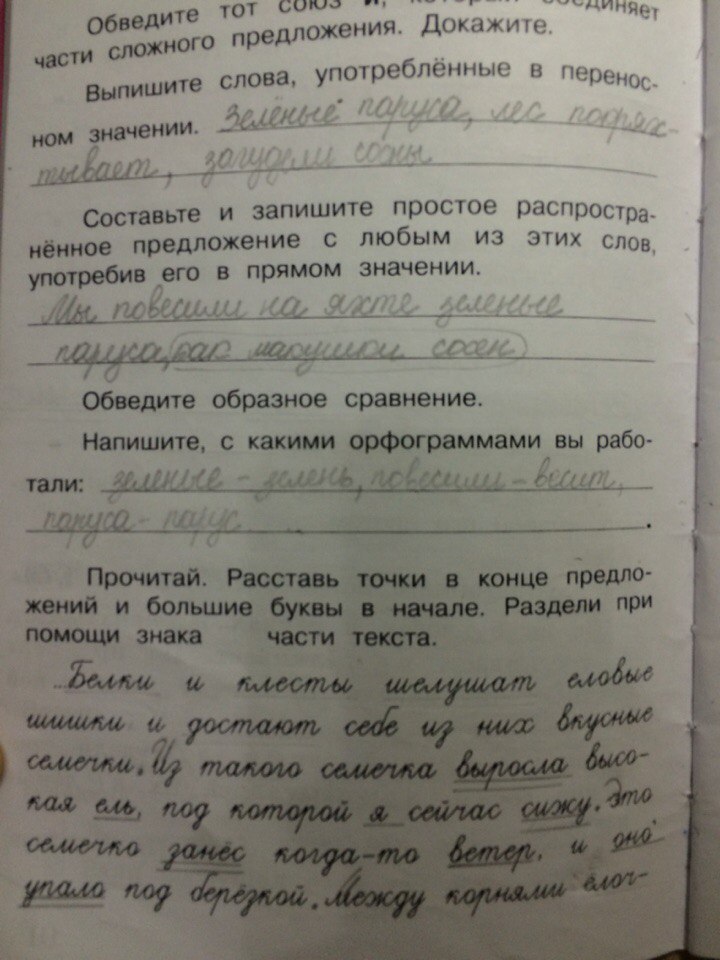 Обведите тот союз и, который соединяет
части сложного предложения. Докажите.
Выпишите слова, употреблённые в перенос-
ном значении. Зелёные паруса, лес покрях-
тывает, загудели сосны
Составьте и запишите простое распростра-
нённое предложение с любым из этих слов,
употребив его в прямом значении.
Мы повесили на яхте зеленые
паруса, как макушки сосен
Обведите образное сравнение.
Напишите, с какими орфограммами вы рабо-
тали: зеленые - зелень, повесили - весит,
паруса - парус.
Прочитай. Расставь точки в конце предло-
жений и большие буквы в начале. Раздели при
помощи знака части текста.
Белки и клесты шелушат еловые
шишки и достают себе из них вкусные
семечки. Из такого семечка выросла высо-
кая ель, под которой я сейчас сижу. Это
семечко занёс когда-то ветер, и оно
упало под берёзкой. Между корнями ёлоч-